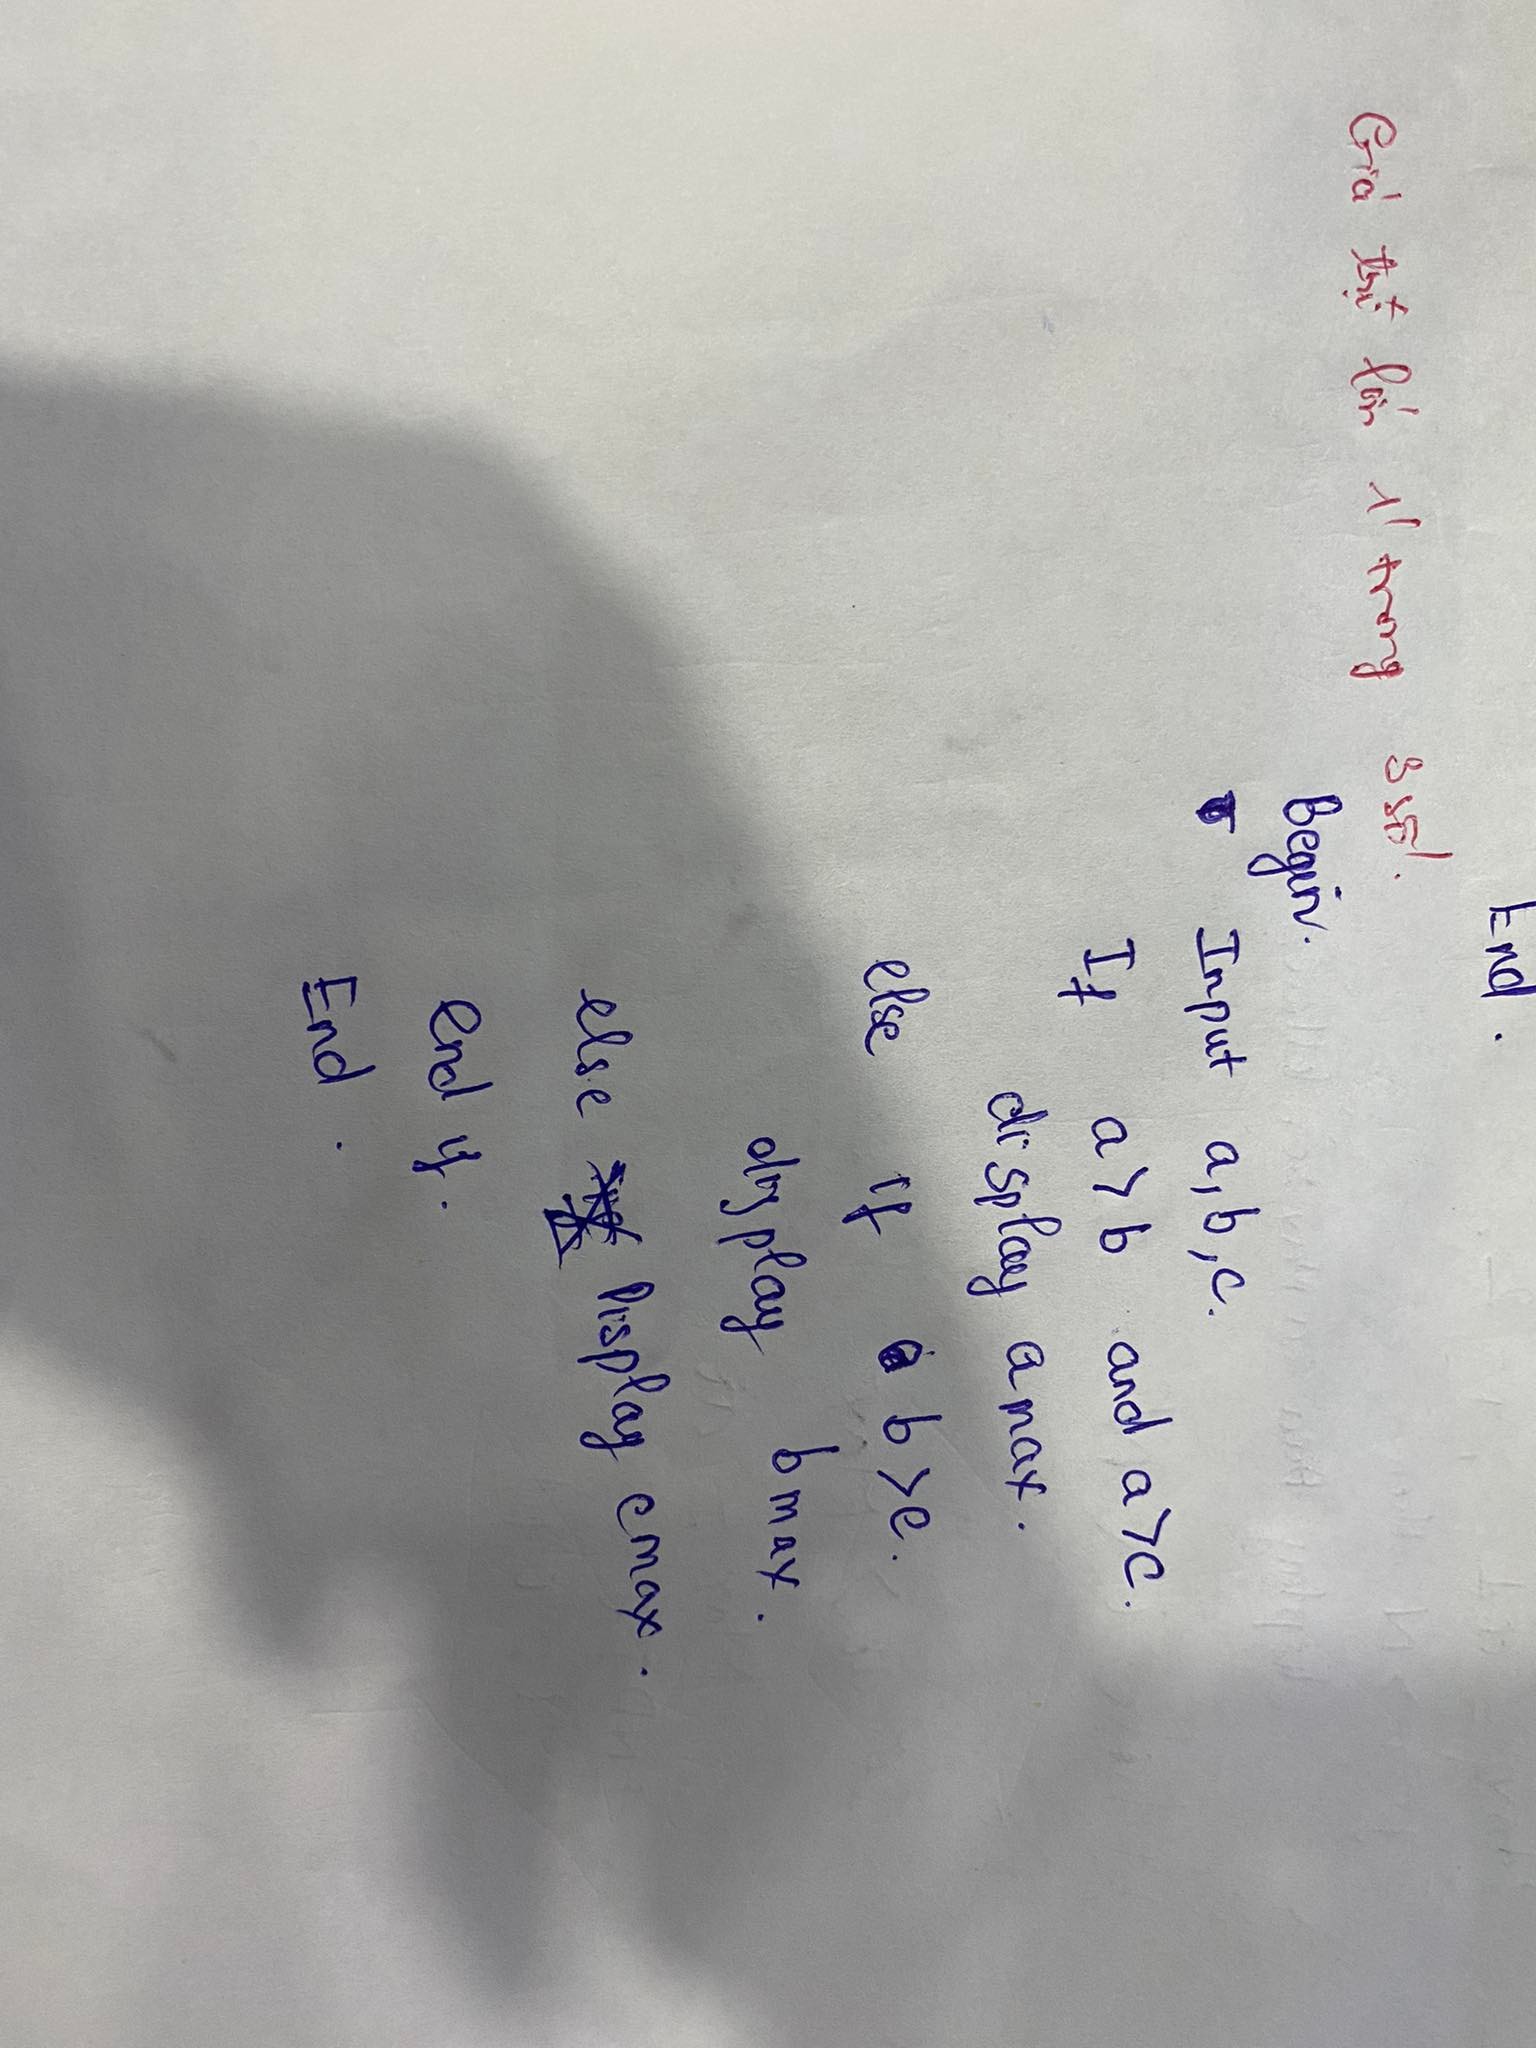 End.
Giá trị lớn 1/ trong 3 số.
Begin.
Input a, b, c.
If a > b and a > c.
display a max.
else if b > c.
display b max.
else Display c max.
end if.
End.